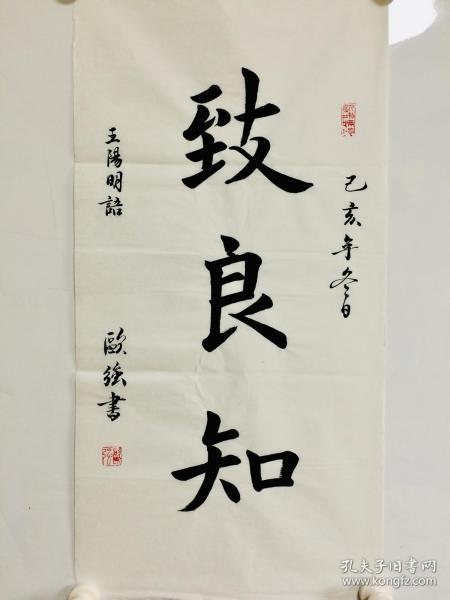 己亥年冬日
致良知
王陽明語
歐強書
孔夫子旧书网
www.kongfz.com